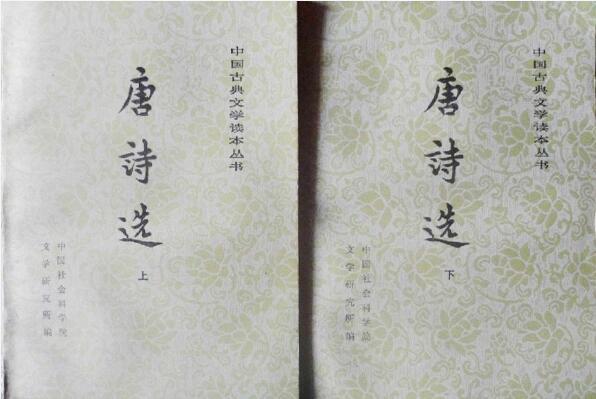 中国古典文学读本丛书
唐詩选
上
中国社会科学院
文学研究所编
中国古典文学读本丛书
唐詩选
下
中国社会科学院
文学研究所编